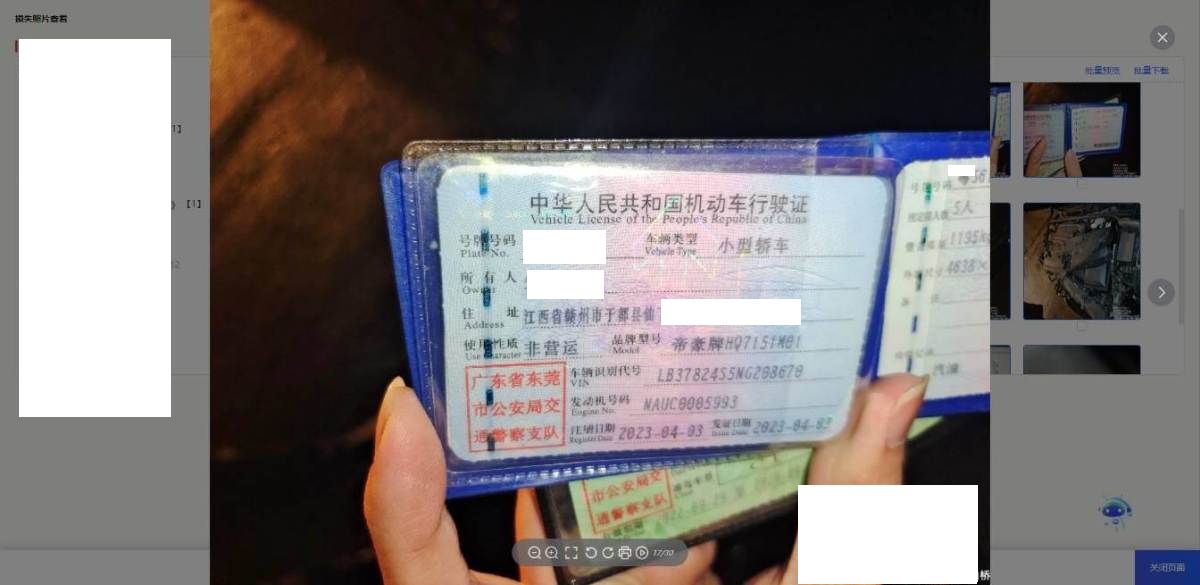 损失照片查看
批量预览 批量下载
1】
【1】
中华人民共和国机动车行驶证
Vehicle License of the People's Republic of China
号牌号码 车辆类型 小型轿车
Plate No. Vehicle Type
所有人
Owner
住址 江西省赣州市于都县仙
Address
使用性质 非营运 品牌型号 帝豪牌HQ7151M01
Use Character Model
广东省东莞
市公安局交
通警察支队
车辆识别代号
VIN
发动机号码 NAUC0005993
Engine No.
注册日期 2023-04-03 发证日期 2023-04-03
Register Date Issue Date
号牌号码
5人
1195kg
4638×
汽油
市公安局交
通警察支队
17/30
桥
关闭页面